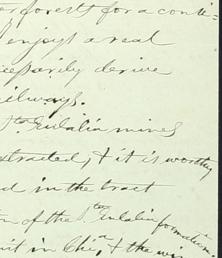 forests for a conti-
enjoys a real
derive
railways.
Sta Eulalia mines
extracted, & it is worthy
in the tract
of the Sta Eulalia formations
in Chia, & the